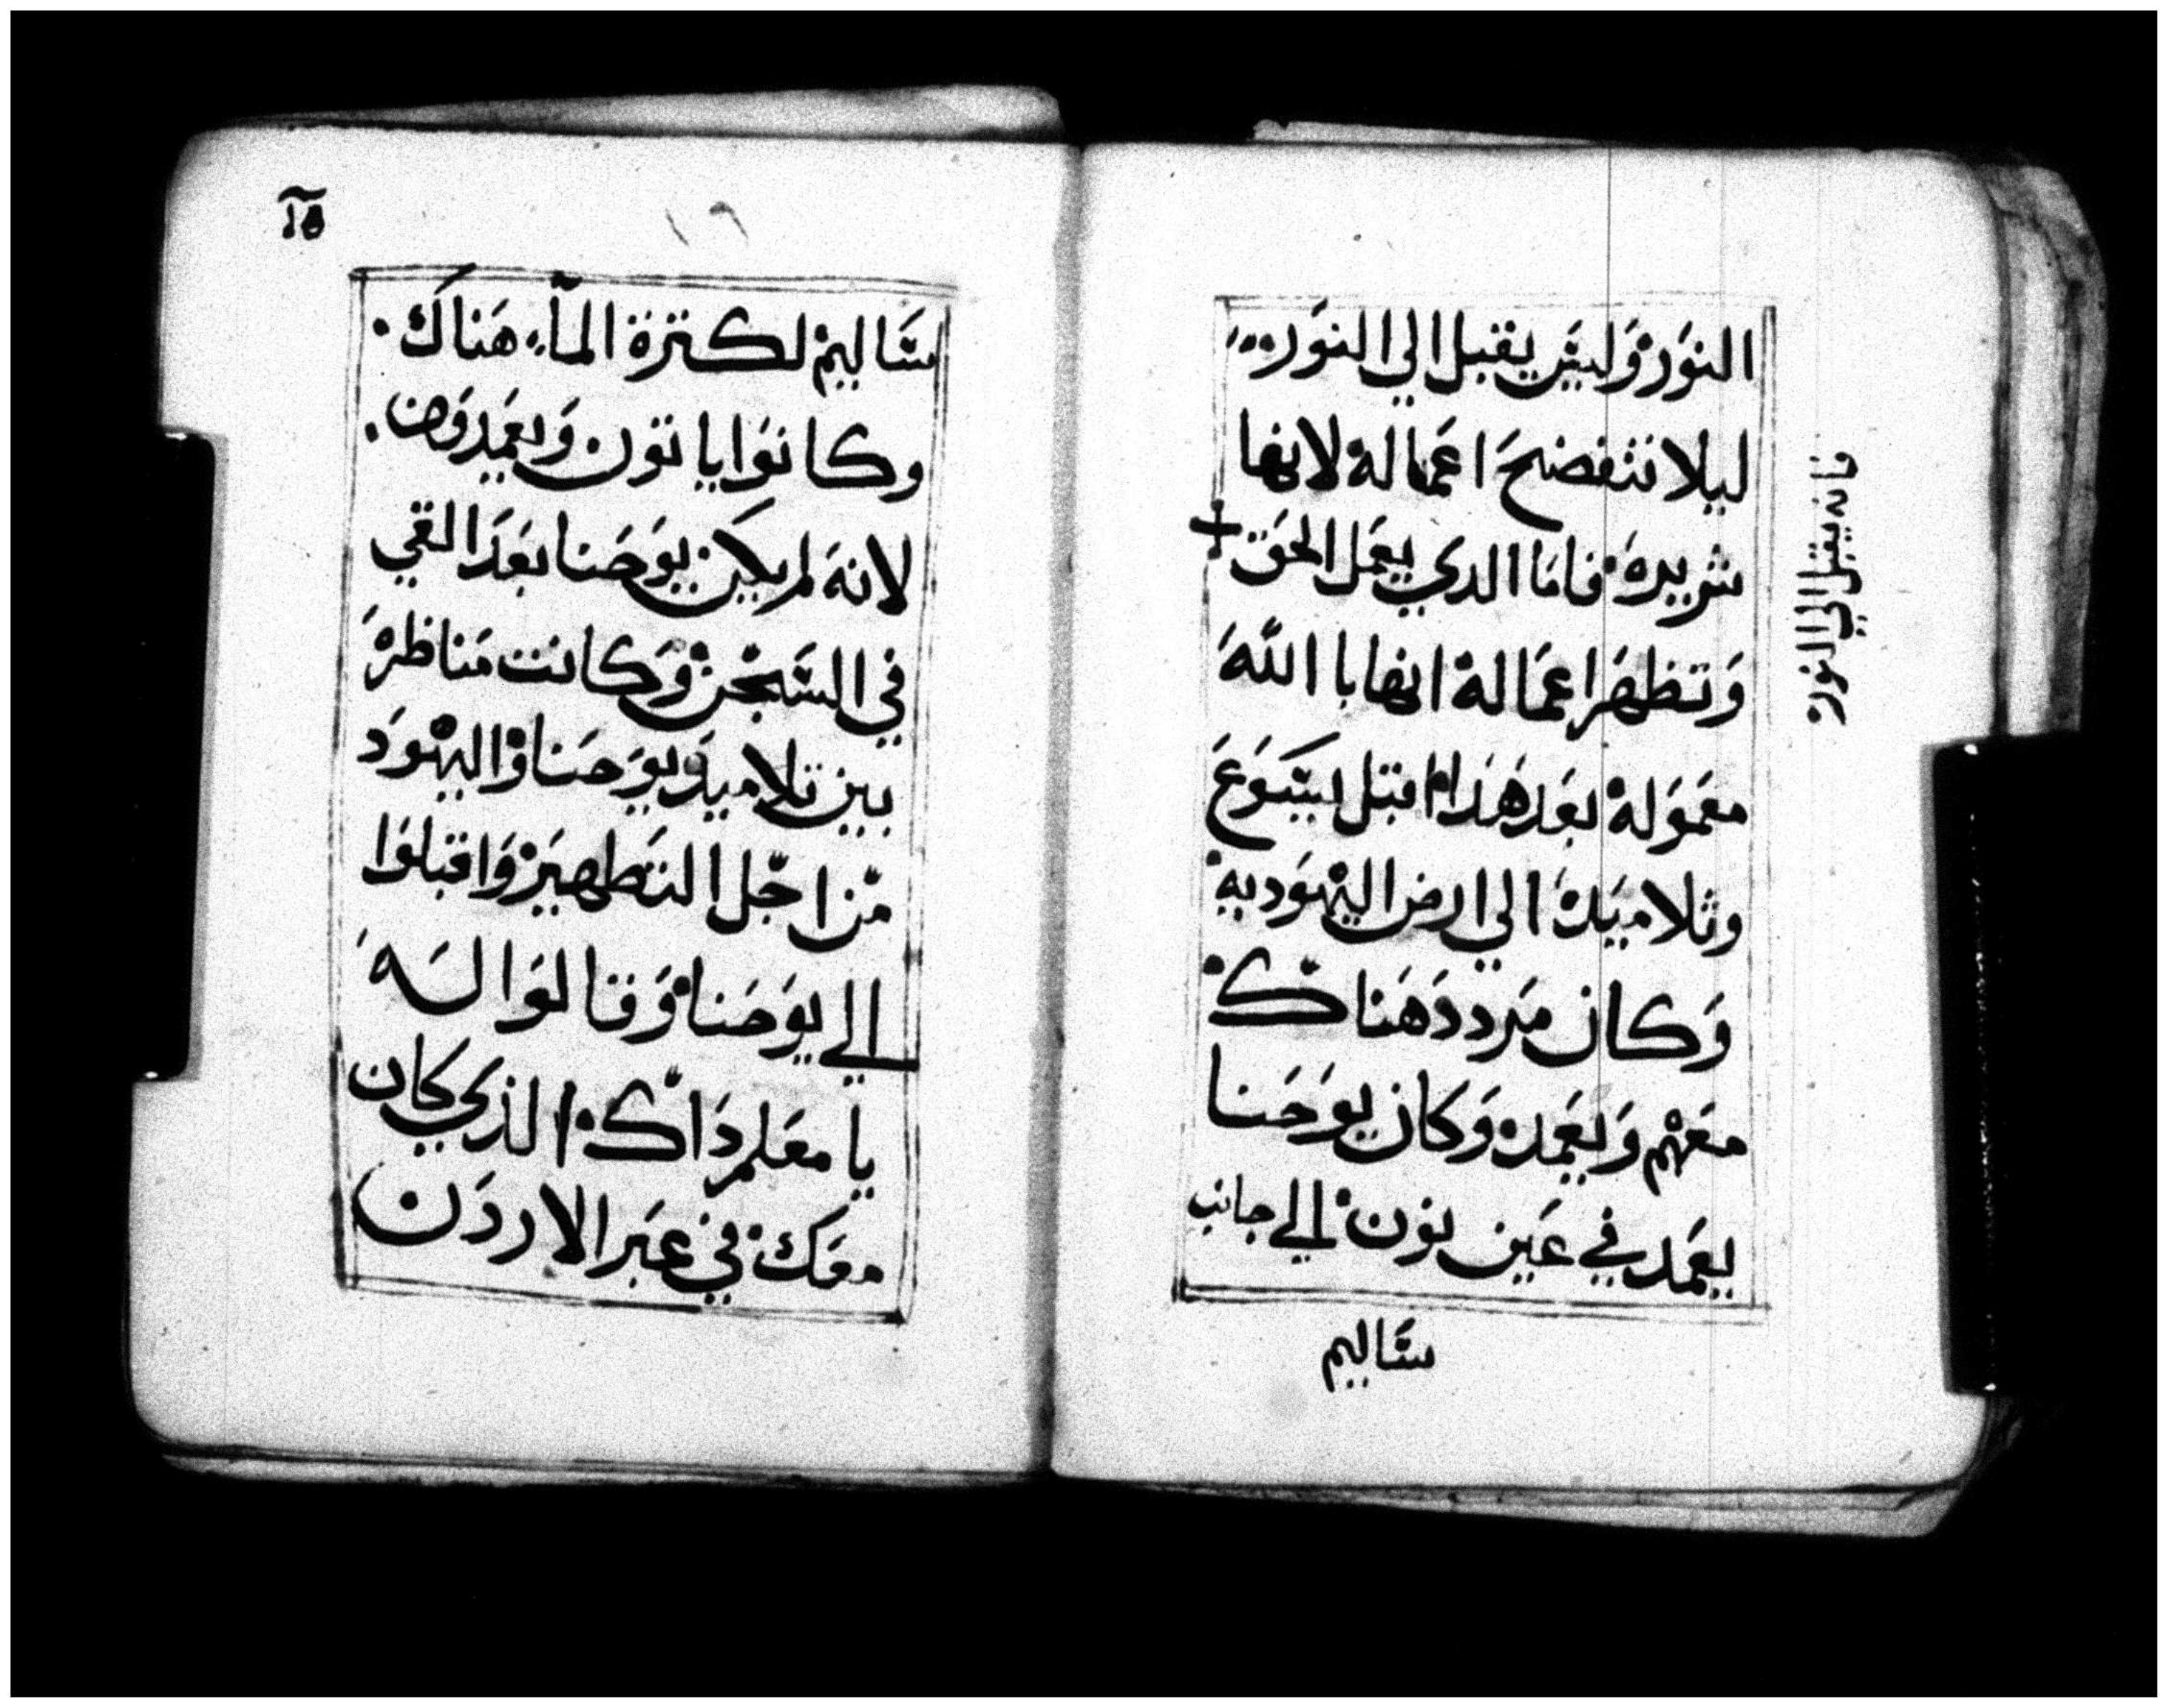 النوَرْ وَليسَ يقبل الي النوَر
ليلا تثفضحَ اعمَالهْ لانها
شريرهْ فامَا الدي يعمَل الحَق +
فانه يقبل الي النور
وَتظهَر اعمَالهْ انها با اللّهَ
معمَوَلهْ بعَد هَذا اقبل يسَوَعَ
وثلاميَدهْ الي ارض اليهْوَديهْ
وَكان مَرددَ هَناكْ
معَهْم وَيعَمدْ وَكان يوَحَنا
يعَمَد في عَين نوْن الي جانب
ساليم
١٥
سَاليمْ لكترة المآء هَناكَ
وكانوَا ياتوَن وَيعمَدوَن
لانهَ لم يكَن يوَحَنا بعَدَ القي
في السَجْن وَكانت مَناظرهَ
بين تلاميدَ يوَحَنا وَاليهْوَدَ
مْن اجْل التَطهيَرْ وَاقبلوَا
الي يوَحَناْ وَقالوَا لهَ
يا معَلم دَاكْ الذي كان
معَكْ في عبَر الاردَن